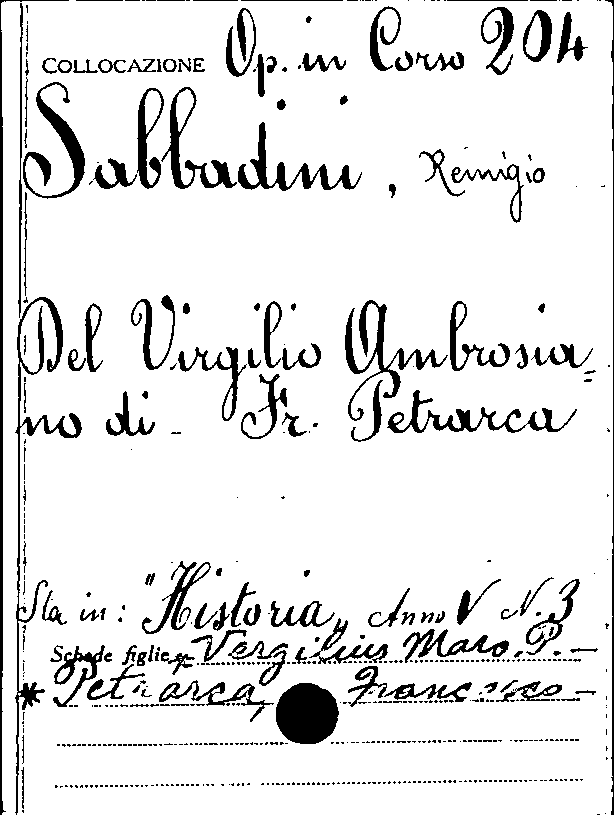 COLLOCAZIONE Op. in Corso 204
Sabbadini, Remigio
Del Virgilio Ambrosia=
no di - Fr. Petrarca
Sta in: "Historia„ Anno V N. 3
Schede figlie: Vergilius Maro. P. -
* Petrarca, Francesco -